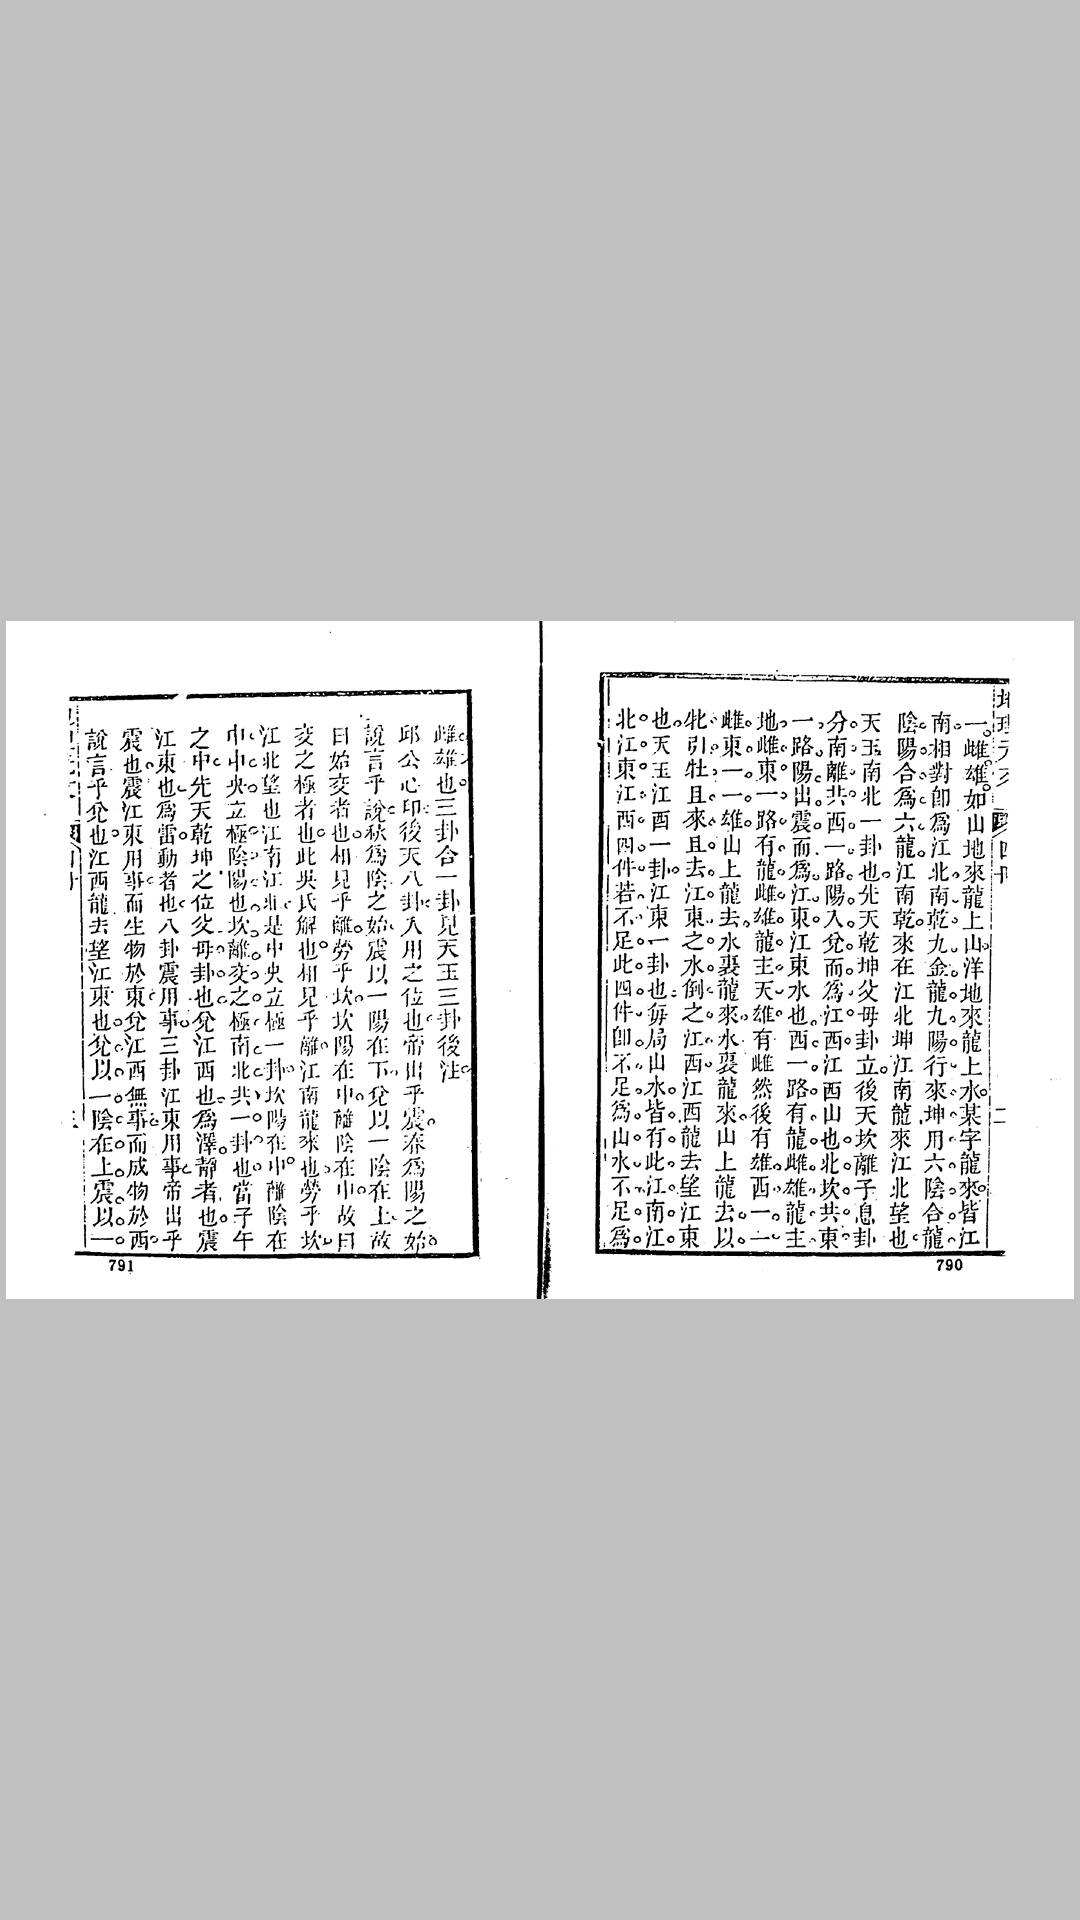 一雌雄如山地來龍上山洋地來龍上水某字龍來皆江
南相對卽為江北南乾九金龍九陽行來坤用六陰合龍
陰陽合為六龍江南乾來在江北坤江南龍來江北望也
天玉南北一卦也先天乾坤父母卦立後天坎離子息卦
分南離共西一路陽入兌而為江西江西山也北坎共東
一路陽出震而為江東江東水也西一路有龍雌雄龍主
地雌東一路有龍雌雄龍主天雄有雌然後有雄西一一
雌東一一雄山上龍去水裏龍來水裏龍來山上龍去以
牝引牡且來且去江東之水倒之江西江西龍去望江東
也天玉江西一卦江東一卦也每局山水皆有此江南江
北江東江西四件若不足此四件卽不足為山水不足為
790
雌雄也三卦合一卦見天玉三卦後注
邱公心印後天八卦入用之位也帝出乎震春為陽之始
說言乎說秋為陰之始震以一陽在下兌以一陰在上故
曰始交者也相見乎離勞乎坎坎陽在中離陰在中故曰
交之極者也此吳氏解也相見乎離江南龍來也勞乎坎
江北望也江南江北是中央立極一卦坎陽在中離陰在
中中央立極陰陽也坎離交之極南北共一卦也當子午
之中先天乾坤之位父母卦也兌江西也為澤靜者也震
江東也為雷動者也八卦震用事三卦江東用事帝出乎
震也震江東用事而生物於東兌江西無事而成物於西
說言乎兌也江西龍去望江東也兌以一陰在上震以一
791